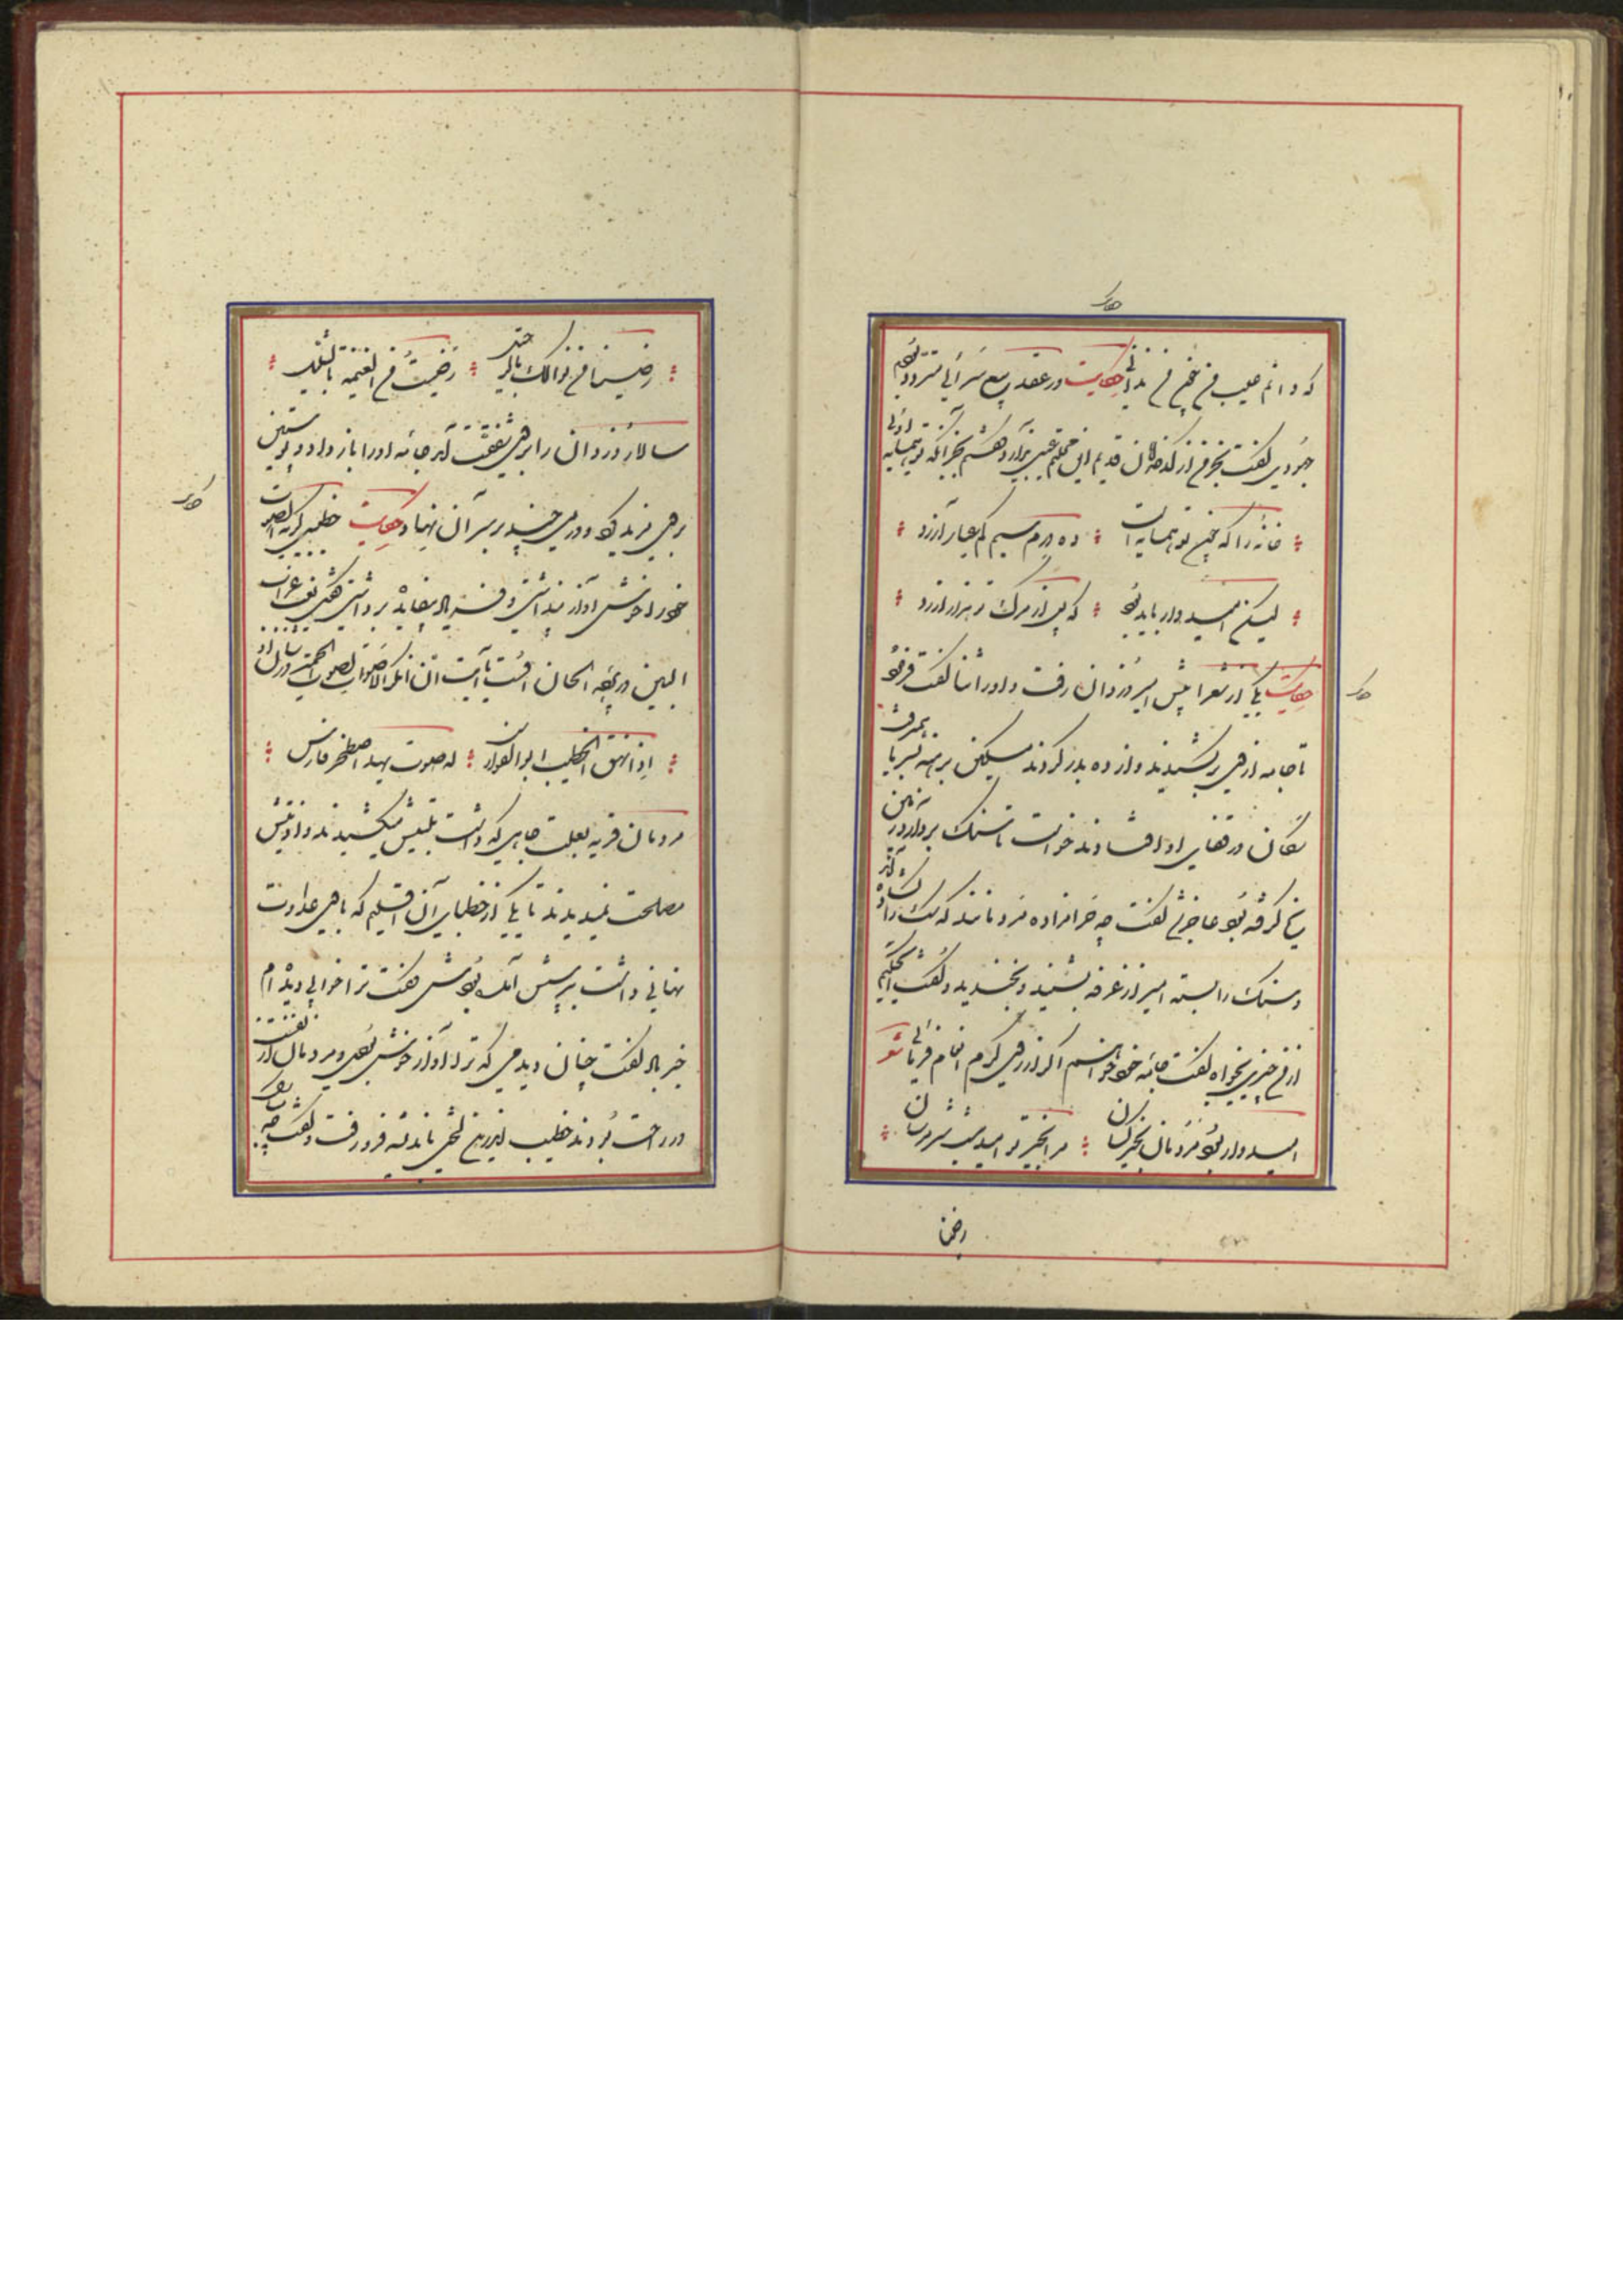 که دانم عیب من چون من ندانی حکایت در عقد بیع سرائی متردد بودم
جهودی گفت بخر من از کدخدایان قدیم این محلتم عیبی ندارد گفتم بجز آنکه تو همسایه اوئی
خانه را که چون تو همسایه است ده درم سیم کم عیار ارزد
لیکن امیدوار باید بود که پس از مرگ تو هزار ارزد
حکایت یکی از شعرا پیش امیر دزدان رفت و او را ثنا گفت فرمود
تا جامه ازوی برکشیدند و از ده بدر کردند مسکین برهنه بسرما همیرفت
سگان در قفای او افتادند خواست تا سنگی بردارد زمین
یخ گرفته بود عاجز شد گفت چه حرامزاده مردمانند که سگ را گشاده‌اند
و سنگ را بسته امیر از غرفه بشنید و بخندید و گفت ای حکیم
از من چیزی بخواه گفت جامه خود خواهم اگر از روی کرم انعام فرمائی شعر
امیدوار بود مردمان بخیر کسان مرا بخیر تو امید نیست شر مرسان
رضینا
رضینا من نوالک بالرحیل رضیت من الغنیمه بالقلیل
سالار دزدان را بروی شفقت آمد جامه او را باز داد و پوستین
بروی مزید کرد و درمی چند بر سر آن نهاد حکایت خطیبی کریه الصوت
خود را خوش آواز پنداشتی و فریاد بیفایده برداشتی گفتی نعیب غراب
البین در پرده الحان اوست یا آیت ان انکر الاصوات لصوت الحمیر در شان او
اذا نهق الخطیب ابو الفوارس له صوت یهد اصطخر فارس
مردمان قریه بعلت جاهی که داشت بلیتش میکشیدند و اذیتش
مصلحت نمیدیدند تا یکی از خطبای آن اقلیم که با وی عداوت
نهانی داشت بپرسش آمده بودش گفت ترا خوابی دیده‌ام
خیر باد گفت چنان دیدمی که ترا آواز خوش بودی و مردمان از نفست
در راحت بودند خطیب اندرین لختی باندیشه فرو رفت و گفت چه مبارک